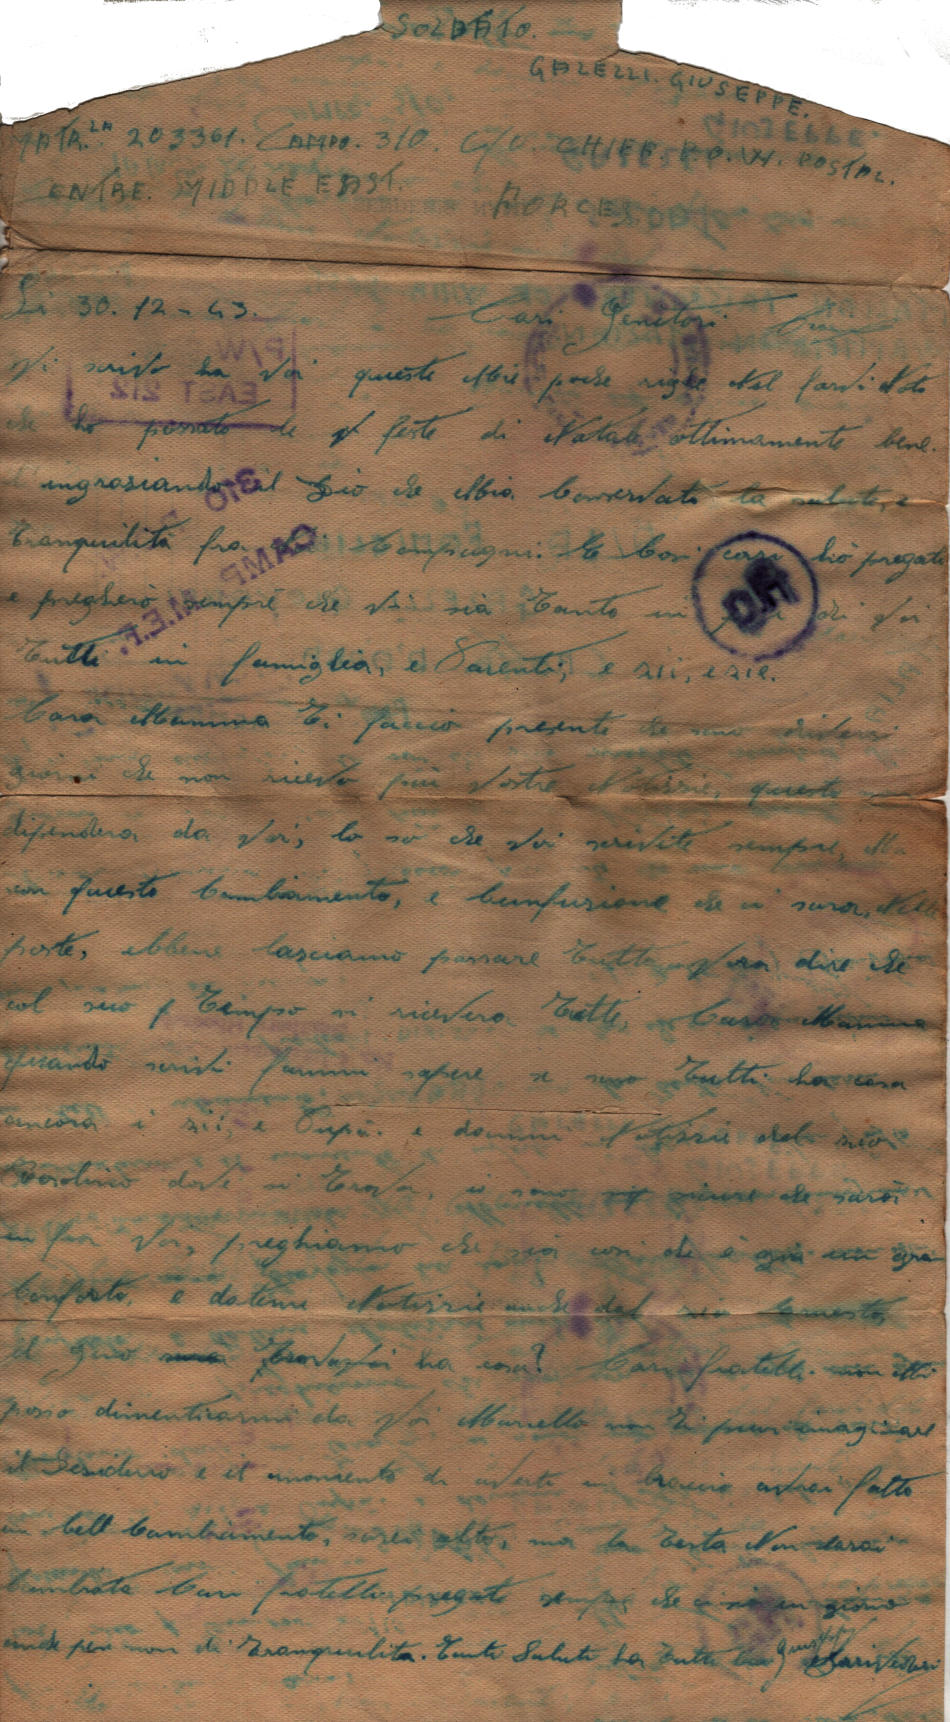 SOLDATO.
GALEZZI. GIUSEPPE.
MATR.LA 203361. CAMPO. 310. C/O. CHIEF. P.O.W. POSTAL.
CENTRE. MIDDLE EAST. FORCES.
Li 30. 12 - 43. Cari Genitori
Vi scrivo ha Voi queste Mie poche righe Nel farvi Noto
che ho passato le feste di Natale ottimamente bene.
ingraziando il Dio che Abia Conservato la salute, e
Tranquilità fra Compagni. E Cosi ho pregato
e pregherò sempre che Vi sia Tanto di Voi
Tutti in famiglia, e Parenti, e zii, e zie.
Cara Mamma Ti faccio presente che sono diversi
giorni che non ricevo più Vostre Notizzie, questo non
dipendera da Voi, lo so che Voi scrivite sempre, Ma
con questo Cambiamento, e Confuzione che ci sara, Nelle
poste, ebbene lasciamo passare Tutto Vora dire che
col suo Tempo si ricevera Tutte, Cara Mamma
quando scrivi fammi sapere se sono Tutti ha casa
ancora i zii, e Papà. e dammi Notizzie del zio
dove si Trova, io sono sicure che sarà
in fra Voi, preghiamo che sia cosi che è già un gran
Conforto, e datemi Notizzie anche del zio Ernesto,
il Gino Trovasi ha casa? Cari fratelli. non Mi
posso dimenticarmi da Voi Marcello non Ti puoi imaginare
il Desiderio e il momento di averti in braccio avrai fatto
un bell Cambiamento, sarei alto, ma la Testa Non sarai
Cambiata Cari fratelli pregate sempre che ci sia un giorno
anche per noi di Tranquilità. Tanti Saluti ha Tutti Giuseppe Arivederci
P/W
EAST 212
310
CAMP M.E.F.